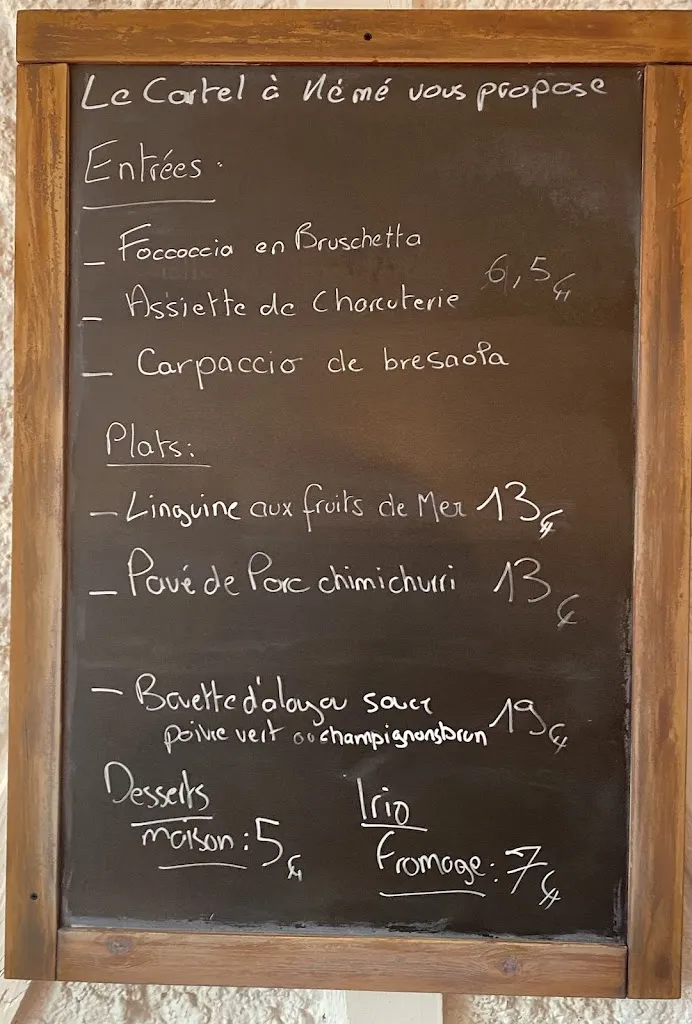 Le Cartel à Mémé vous propose
Entrées :
- Foccoccia en Bruschetta
6,5€
- Assiette de Charcuterie
- Carpaccio de bresaola
Plats :
- Linguine aux fruits de Mer 13€
- Pavé de Porc chimichurri 13€
- Bavette d'aloyau sauce
poivre vert ou champignons brun 19€
Desserts
maison : 5€
Trio
fromage : 7€